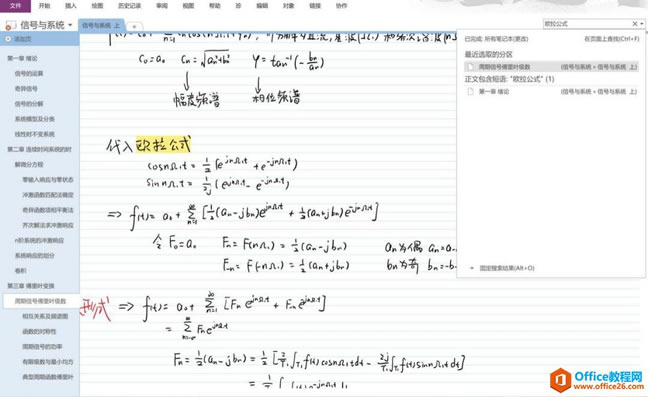 文件 开始 插入 绘图 历史记录 审阅 视图 帮助 对象 链接 协作
信号与系统
信号与系统 上
欧拉公式
添加页
已完成: 所有笔记本(更改) 在页面上查找(Ctrl+F)
最近选取的分区
周期信号傅里叶级数 (信号与系统 « 信号与系统 上)
正文包含短语: "欧拉公式" (1)
第一章 绪论 (信号与系统 « 信号与系统 上)
固定搜索结果(Alt+O)
第一章 绪论
信号的运算
奇异信号
信号的分解
系统模型及分类
线性时不变系统
第二章 连续时间系统的时
解微分方程
零输入响应与零状态
冲激函数匹配法确定
奇异函数项相平衡法
齐次解法求冲激响应
n阶系统的冲激响应
系统响应的划分
卷积
第三章 傅里叶变换
周期信号傅里叶级数
相互关系及频谱图
函数的对称性
周期信号的功率
有限级数与最小均方
典型周期函数傅里叶
C₀=a₀ Cₙ=√aₙ²+bₙ² φ=tan⁻¹(-bₙ/aₙ)
幅度频谱 相位频谱
代入 欧拉公式
cosnΩ₁t = 1/2 (e^jnΩ₁t + e^-jnΩ₁t)
sinnΩ₁t = 1/2j (e^jnΩ₁t - e^-jnΩ₁t)
⇒ f(t) = a₀ + ∑ₙ₌₁^∞ [1/2(aₙ-jbₙ)e^jnΩ₁t + 1/2(aₙ+jbₙ)e^-jnΩ₁t]
令 F₀=a₀ Fₙ = F(nΩ₁) = 1/2(aₙ-jbₙ) aₙ为偶
F₋ₙ = F(-nΩ₁) = 1/2(aₙ+jbₙ) bₙ为奇
形式 ⇒ f(t) = a₀ + ∑ₙ₌₁^∞ [Fₙ e^jnΩ₁t + F₋ₙ e^-jnΩ₁t]
= ∑ₙ₌₋∞^∞ Fₙe^jnΩ₁t
Fₙ = 1/2(aₙ-jbₙ) = 1/2 [2/T₁ ∫T₁ f(t)cosnΩ₁tdt - 2j/T₁ ∫T₁ f(t)sinnΩ₁tdt]
Office教程网
www.office26.com